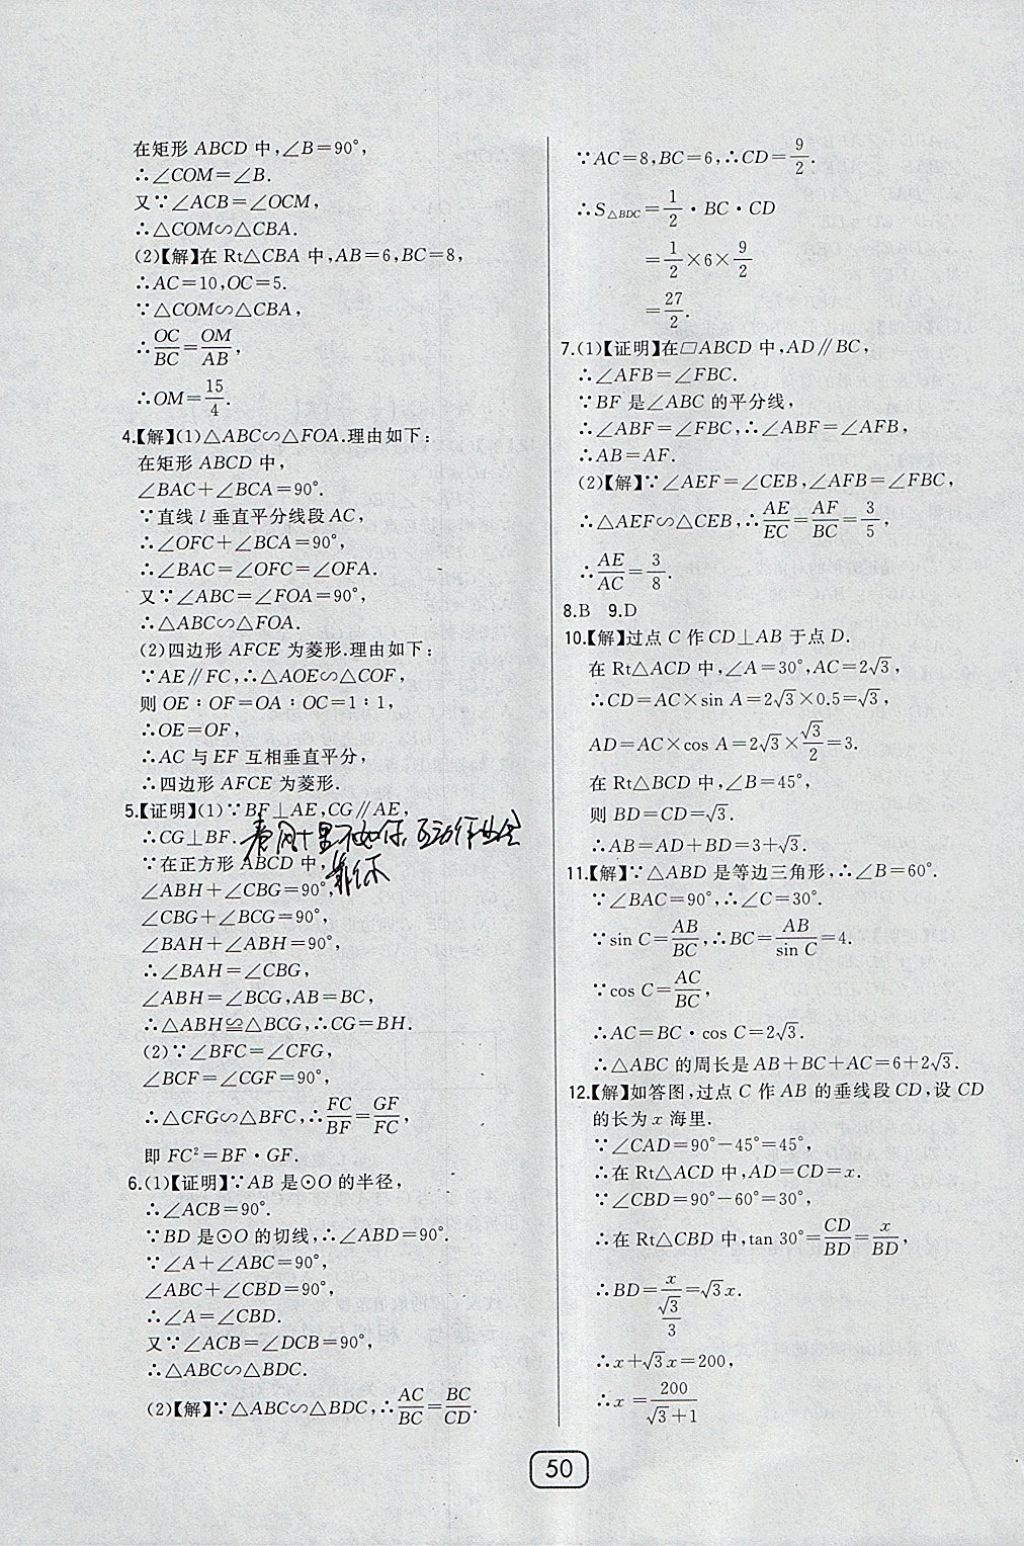 在矩形 ABCD 中,∠B=90°,
∴∠COM=∠B.
又∵∠ACB=∠OCM,
∴△COM∽△CBA.
(2)【解】在 Rt△CBA 中,AB=6,BC=8,
∴AC=10,OC=5.
∵△COM∽△CBA,
∴OC/BC=OM/AB,
∴OM=15/4.
4.【解】(1)△ABC∽△FOA.理由如下:
在矩形 ABCD 中,
∠BAC+∠BCA=90°.
∵直线 l 垂直平分线段 AC,
∴∠OFC+∠BCA=90°,
∴∠BAC=∠OFC=∠OFA.
又∵∠ABC=∠FOA=90°,
∴△ABC∽△FOA.
(2)四边形 AFCE 为菱形.理由如下:
∵AE∥FC,∴△AOE∽△COF,
则 OE∶OF=OA∶OC=1∶1,
∴OE=OF,
∴AC 与 EF 互相垂直平分,
∴四边形 AFCE 为菱形.
5.【证明】(1)∵BF⊥AE,CG∥AE,
∴CG⊥BF.
春风十里不如你,互动作业会
靠你
∵在正方形 ABCD 中,
∠ABH+∠CBG=90°,
∠CBG+∠BCG=90°,
∠BAH+∠ABH=90°,
∴∠BAH=∠CBG,
∠ABH=∠BCG,AB=BC,
∴△ABH≌△BCG,∴CG=BH.
(2)∵∠BFC=∠CFG,
∠BCF=∠CGF=90°,
∴△CFG∽△BFC,∴FC/BF=GF/FC,
即 FC²=BF·GF.
6.(1)【证明】∵AB 是⊙O 的半径,
∴∠ACB=90°.
∵BD 是⊙O 的切线,∴∠ABD=90°.
∵∠A+∠ABC=90°,
∠ABC+∠CBD=90°,
∴∠A=∠CBD.
又∵∠ACB=∠DCB=90°,
∴△ABC∽△BDC.
(2)【解】∵△ABC∽△BDC,∴AC/BC=BC/CD.
∵AC=8,BC=6,∴CD=9/2.
∴S△BDC=1/2·BC·CD
=1/2×6×9/2
=27/2.
7.(1)【证明】在▱ABCD 中,AD∥BC,
∴∠AFB=∠FBC.
∵BF 是∠ABC 的平分线,
∴∠ABF=∠FBC,∴∠ABF=∠AFB,
∴AB=AF.
(2)【解】∵∠AEF=∠CEB,∠AFB=∠FBC,
∴△AEF∽△CEB,∴AE/EC=AF/BC=3/5,
∴AE/AC=3/8.
8.B 9.D
10.【解】过点 C 作 CD⊥AB 于点 D.
在 Rt△ACD 中,∠A=30°,AC=2√3,
∴CD=AC×sin A=2√3×0.5=√3,
AD=AC×cos A=2√3×√3/2=3.
在 Rt△BCD 中,∠B=45°,
则 BD=CD=√3,
∴AB=AD+BD=3+√3.
11.【解】∵△ABD 是等边三角形,∴∠B=60°.
∵∠BAC=90°,∴∠C=30°.
∵sin C=AB/BC,∴BC=AB/sin C=4.
∵cos C=AC/BC,
∴AC=BC·cos C=2√3.
∴△ABC 的周长是 AB+BC+AC=6+2√3.
12.【解】如答图,过点 C 作 AB 的垂线段 CD,设 CD
的长为 x 海里.
∵∠CAD=90°-45°=45°,
∴在 Rt△ACD 中,AD=CD=x.
∵∠CBD=90°-60°=30°,
∴在 Rt△CBD 中,tan 30°=CD/BD=x/BD,
∴BD=x/(√3/3)=√3x.
∴x+√3x=200,
∴x=200/(√3+1)
50